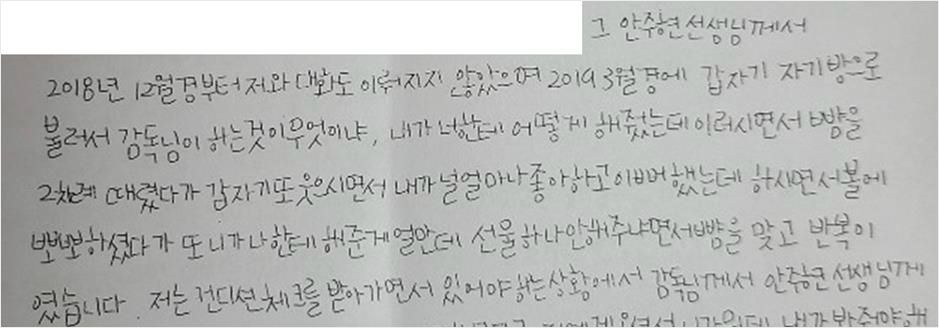 그 안주현 선생님께서
2018년 12월경부터 저와 대화도 이루어지지 않았으며 2019 3월경에 갑자기 자기방으로
불러서 감독님이 하는것이 무엇이냐, 내가 너한테 어떻게 해줬는데 이러시면서 뺨을
2차례 때렸다가 갑자기 또 웃으시면서 내가 널 얼마나 좋아하고 이뻐했는데 하시면서 볼에
뽀뽀하셨다가 또 니가 나한테 해준게 얼만데 선물하나 안해주냐면서 뺨을 맞고 반복이
였습니다. 저는 컨디션 체크를 받아가면서 있어야 하는 상황에서 감독님께서 안주현 선생님께